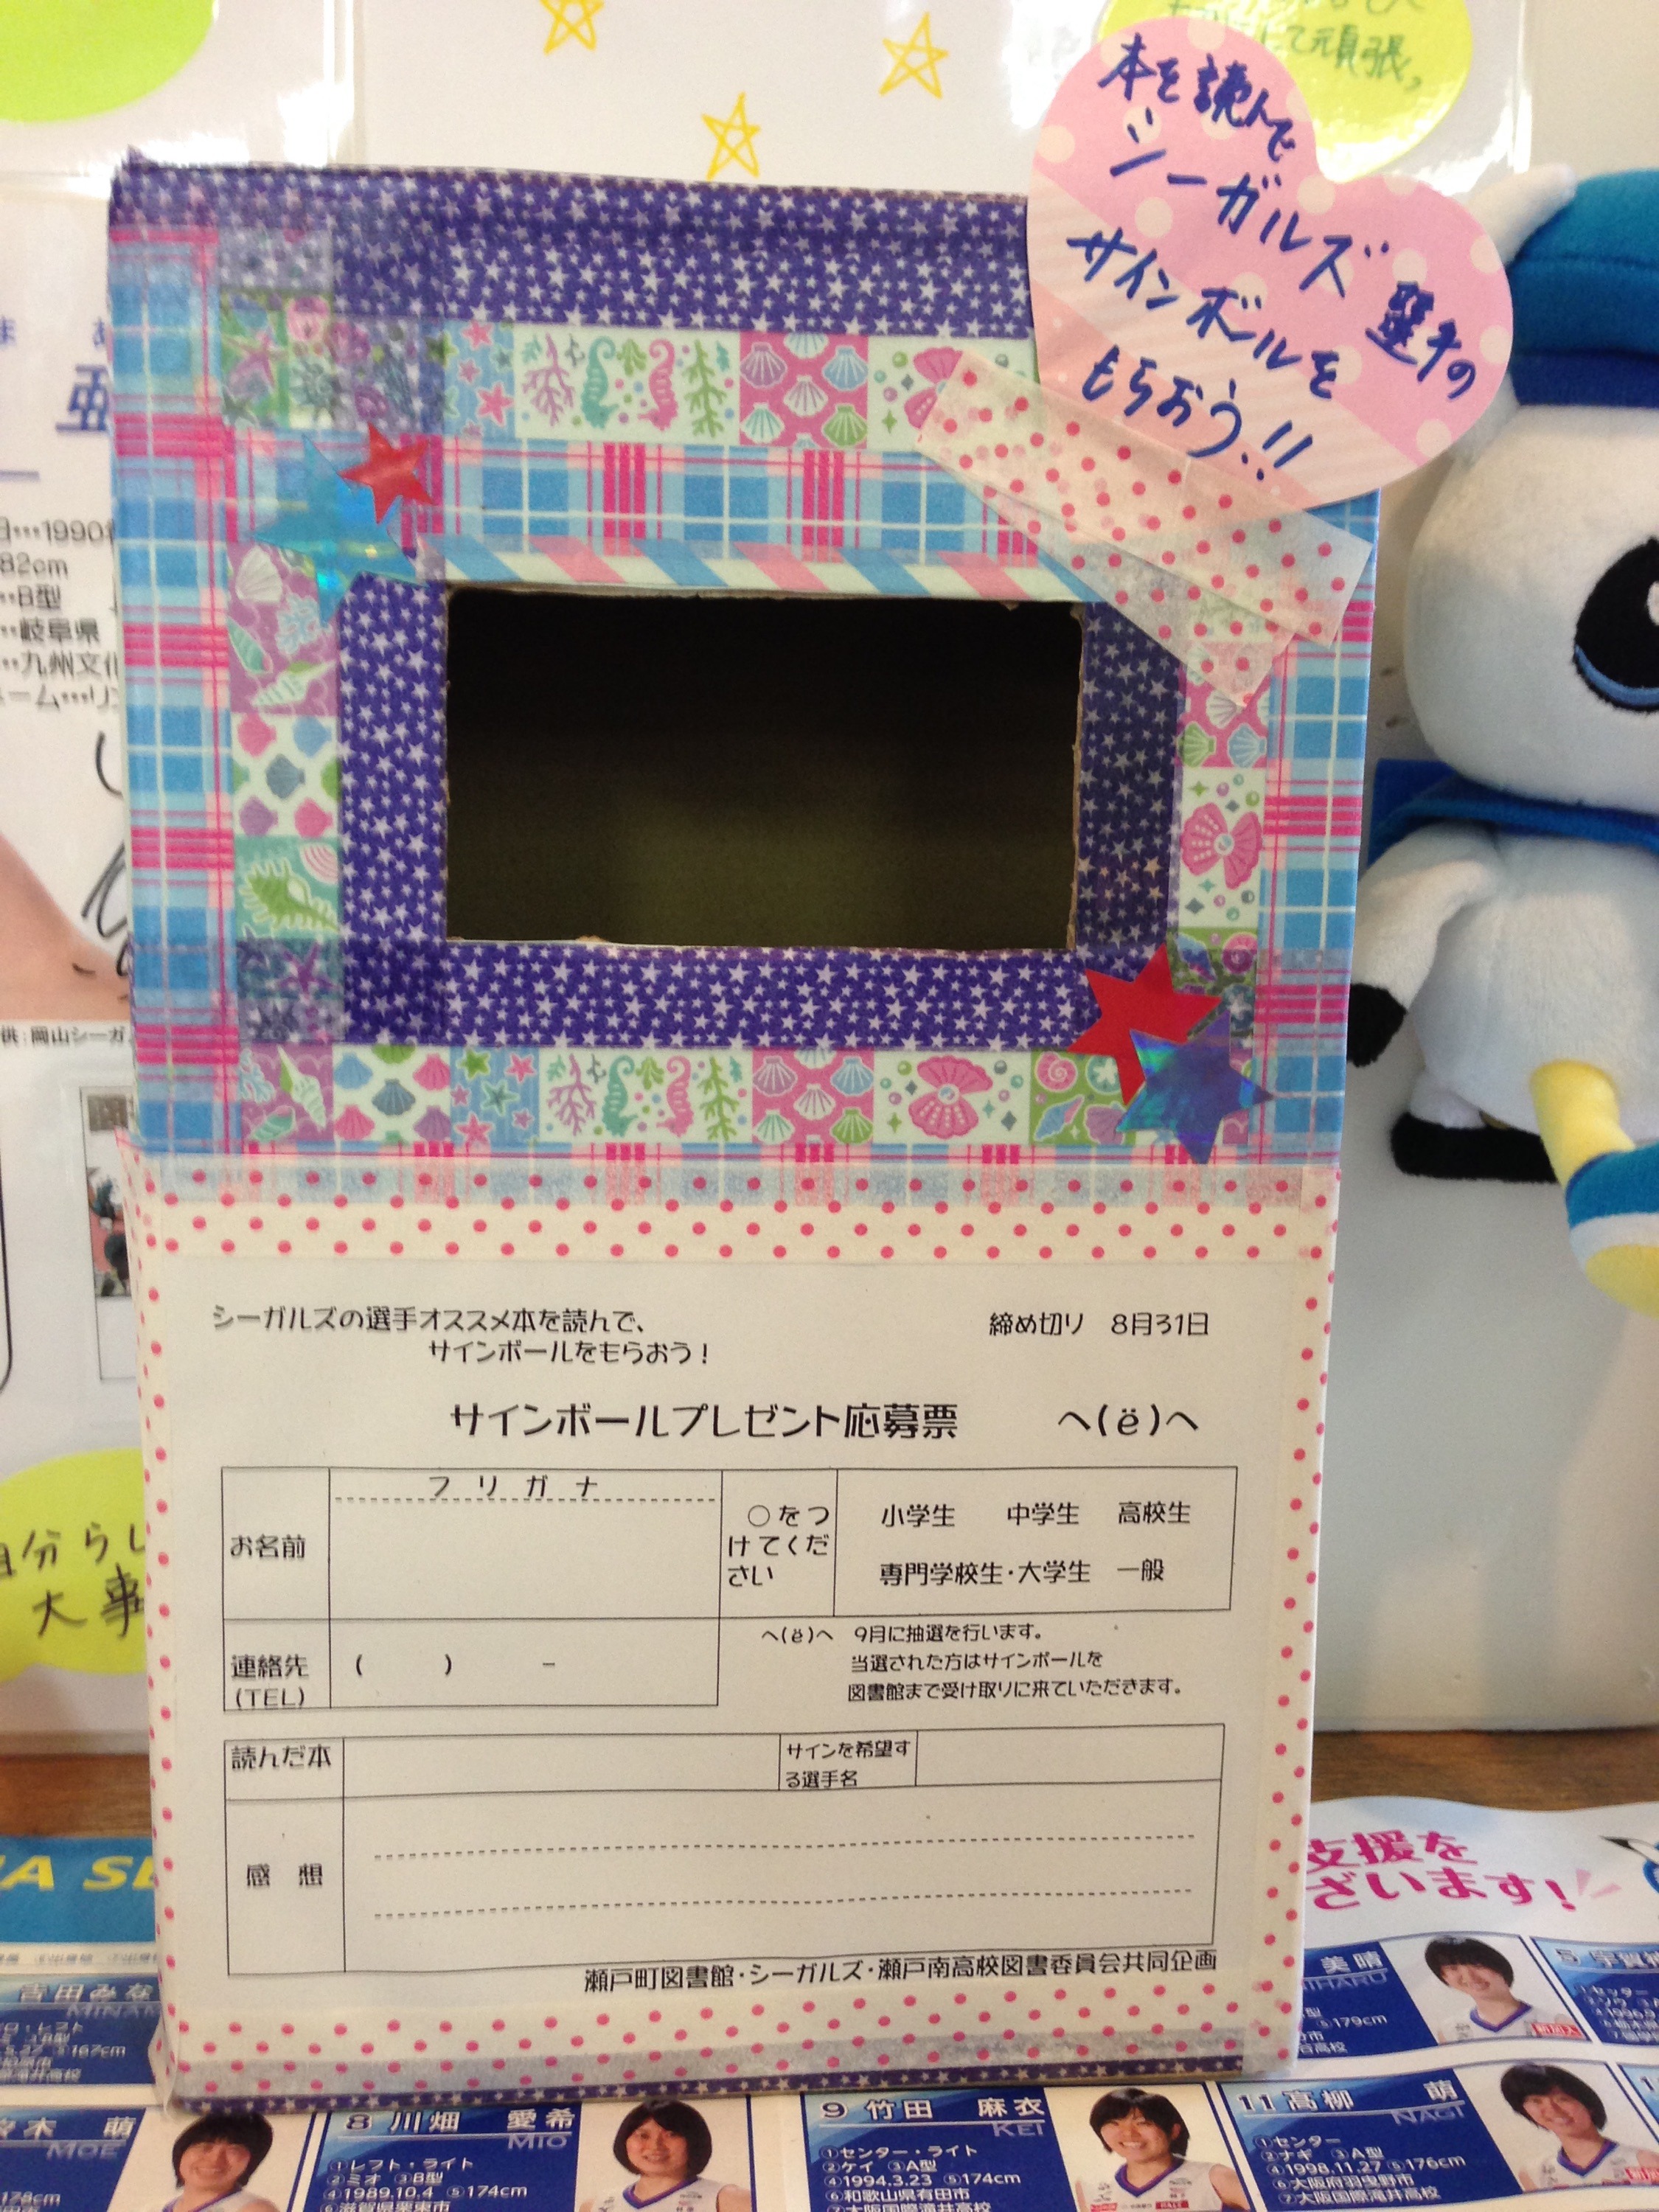 て頑張
本を読んで
シーガルズ選手の
サインボールを
もらおう!!
1990
82cm
B型
岐阜県
九州文化
供:岡山シーガ
シーガルズの選手オススメ本を読んで、
サインボールをもらおう!
締め切り 8月31日
サインボールプレゼント応募票 へ(ё)へ
フリガナ
お名前
○をつ
けてくだ
さい
小学生 中学生 高校生
専門学校生・大学生 一般
連絡先
(TEL)
( ) -
へ(ё)へ 9月に抽選を行います。
当選された方はサインボールを
図書館まで受け取りに来ていただきます。
読んだ本
サインを希望す
る選手名
感 想
瀬戸町図書館・シーガルズ・瀬戸南高校図書委員会共同企画
自分らし
大事
支援を
ざいます!
吉田みな
MINAM
167cm
美晴
MIHARU
179cm
木 萌
MOE
178cm
8 川畑 愛希
MIO
①レフト・ライト
②ミオ ③B型
④1989.10.4 ⑤174cm
⑥滋賀県栗東市
9 竹田 麻衣
KEI
①センター・ライト
②ケイ ③A型
④1994.3.23 ⑤174cm
⑥和歌山県有田市
⑦大阪国際滝井高校
11 高柳 萌
NAGI
①センター
②ナギ ③A型
④1998.11.27 ⑤176cm
⑥大阪府羽曳野市
⑦大阪国際滝井高校